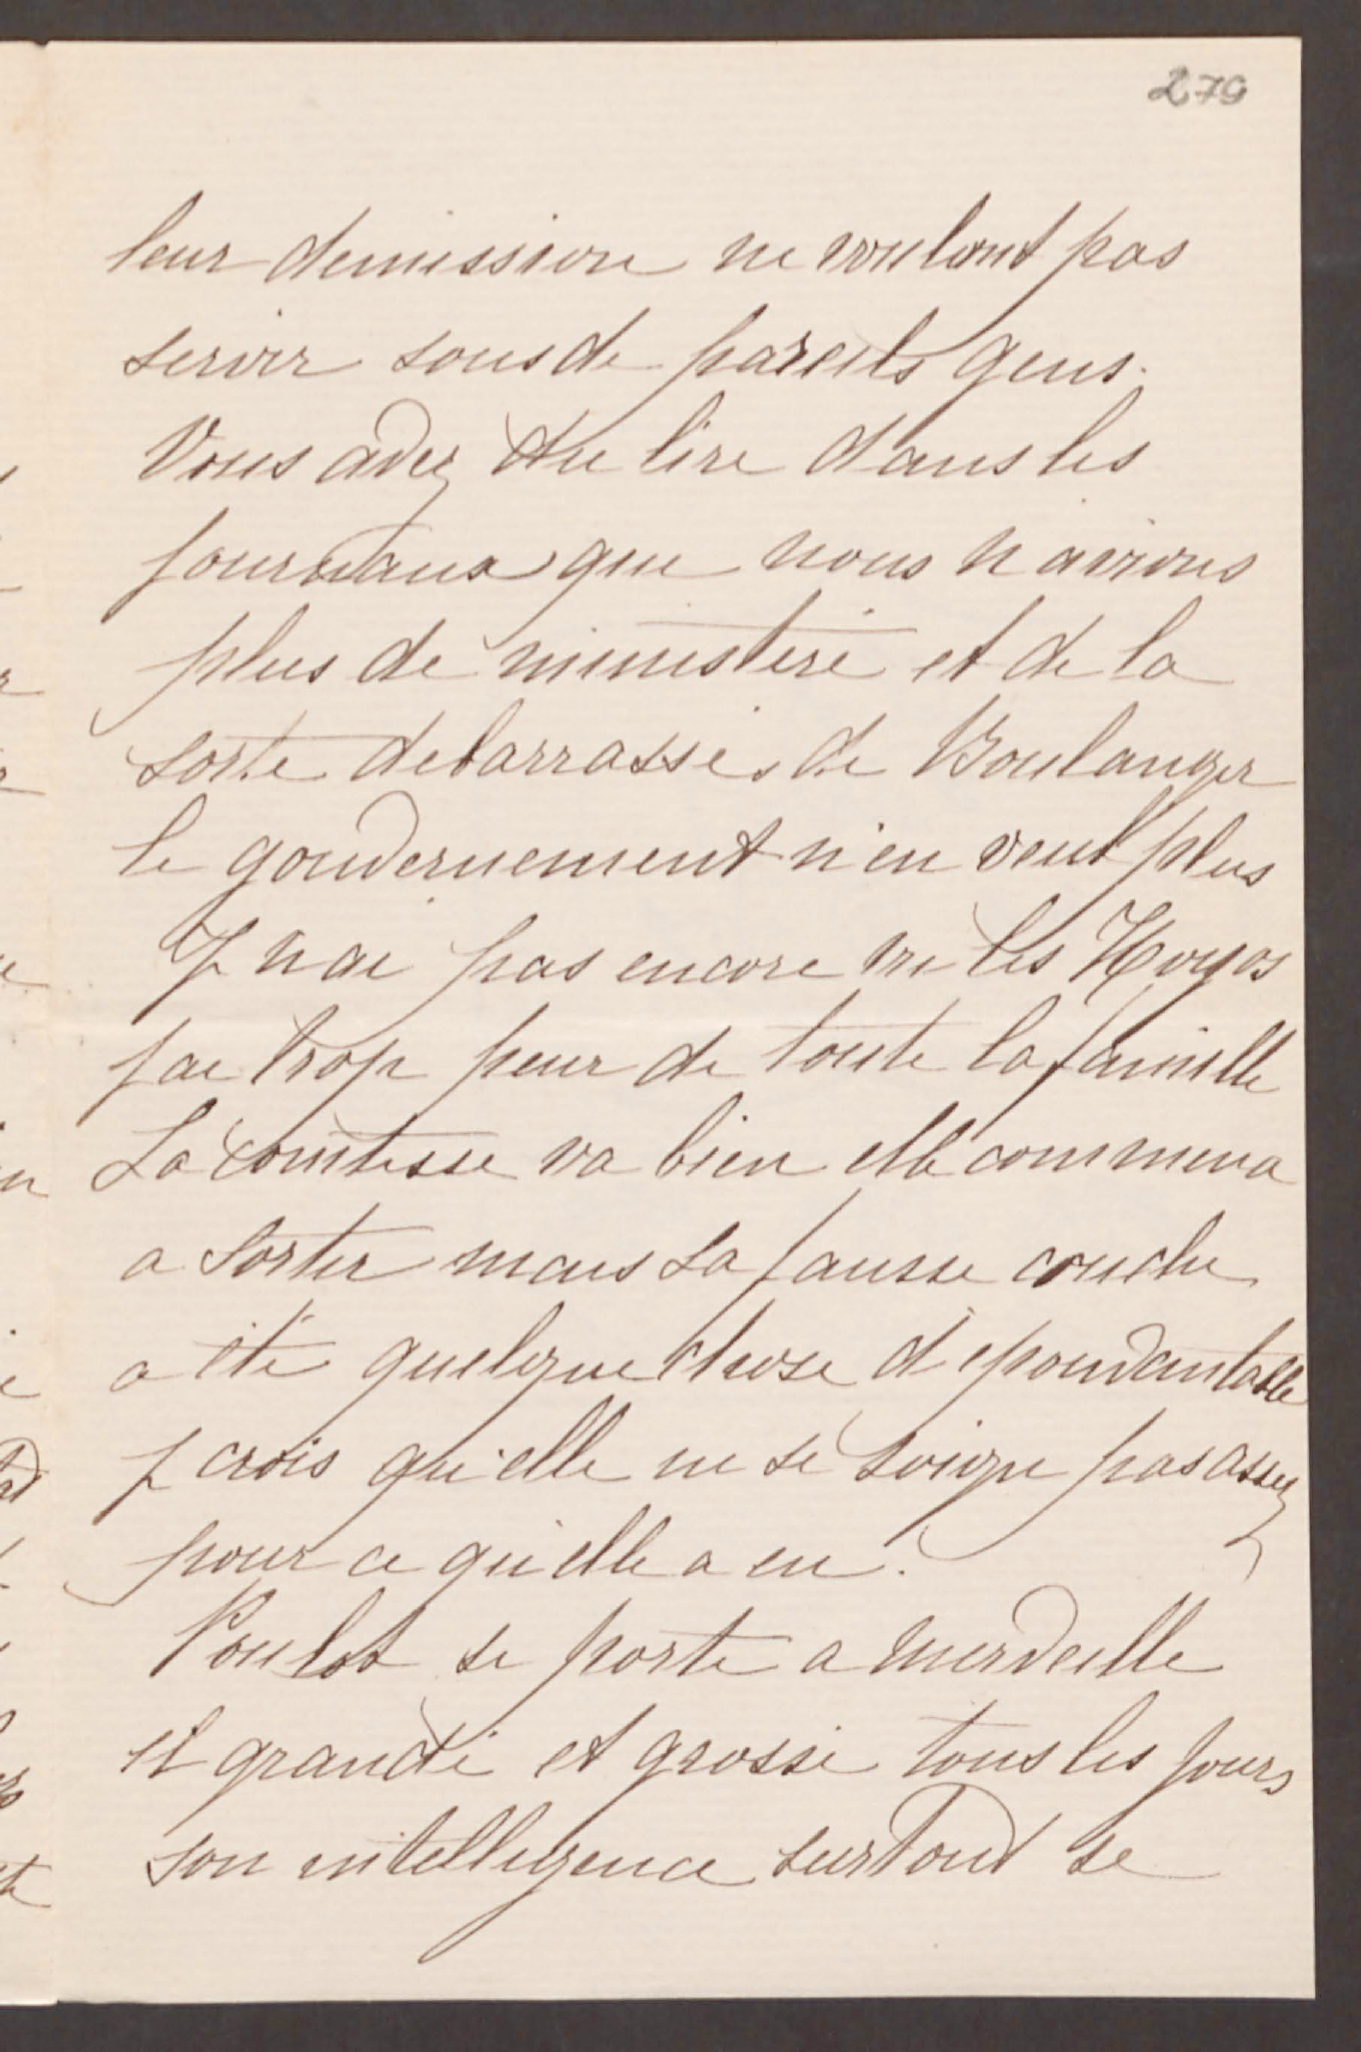 279
leur demission ne voulant pas
servir sous de pareils gens.
Vous avez du lire dans les
journaux que nous n avions
plus de ministere et de la
sorte debarrassés de Boulanger
le gouvernement n'en veut plus
J n ai pas encore vu les Hoyos
j'ai trop peur de toute la famille
La comtesse va bien elle commence
a sortir mais sa fausse couche
a été quelque chose d epouvantable
J crois qu'elle ne se soigne pas assez
pour ce qu'elle a eu.
Poulot se porte a merveille
il grandi et grossi tous les jours
son intelligence surtout se